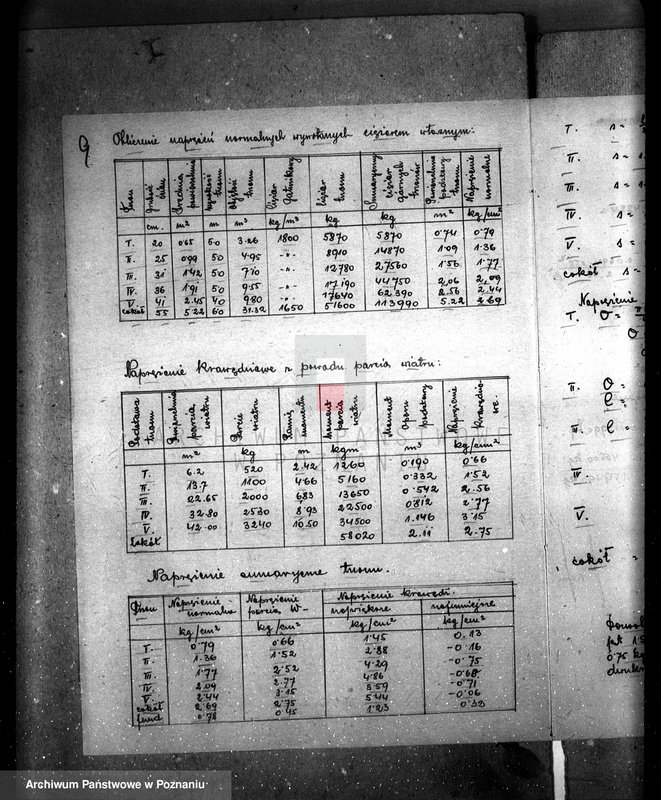 9
Obliczenie naprężeń normalnych wywołanych ciężarem własnym:
Trzon
grubość
muru
Średnia
powierzchnia
wysokość
trzonu
objętość
trzonu
Ciężar
gatunkowy
ciężar
trzonu
Sumaryczny
ciężar
górnych
trzonów
Powierzchnia
podstawy
trzonu
Naprężenie
normalne
cm. m² m m³ kg/m³ kg kg m² kg/cm²
I. 20 0.65 50 3.26 1800 5870 5870 0.74 0.79
II. 25 0.99 50 4.95 -"- 8910 14870 1.09 1.36
III. 31 1.42 50 7.10 -"- 12780 27560 1.56 1.77
IV. 36 1.91 50 9.55 -"- 17190 44750 2.06 2.09
V. 41 2.45 40 9.80 -"- 17640 62390 2.56 2.44
cokół 55 5.22 60 31.32 1650 51600 113990 5.22 2.69
Naprężenie krawędziowe z powodu parcia wiatru:
Podstawa
trzonu
Powierzchnia
parcia
wiatru
Parcie
wiatru
Ramię
momentu
Moment
parcia
wiatru
Moment
oporu
podstawy
Naprężenie
krawędzio
we.
m² kg m kgm m³ kg/cm²
I. 6.2 520 2.42 1260 0.190 0.66
II. 13.7 1100 4.66 5160 0.332 1.52
III. 22.65 2000 6.83 13650 0.542 2.56
IV. 32.80 2530 8.93 22500 0.812 2.77
V. 42.00 3240 10.50 34500 1.146 3.15
cokół 58020 2.11 2.75
Naprężenie sumaryczne trzonu.
Trzon Naprężenie Naprężenie Naprężenie krawędzi.
normalne parcia W- największe najmniejsze
kg/cm² kg/cm² kg/cm² kg/cm²
I. 0.79 0.66 1.45 0.13
II. 1.36 1.52 2.88 -0.16
III. 1.77 2.52 4.29 -0.75
IV. 2.09 2.77 4.86 -0.68
V. 2.44 3.15 5.59 -0.71
cokół 2.69 2.75 5.44 -0.06
fund 0.78 0.45 1.23 0.33
I. s =
II. s =
III. s =
IV. s =
V. s =
cokół s =
Naprężenie
I. σ =
II.
IV.
V.
cokół =
Archiwum Państwowe w Poznaniu